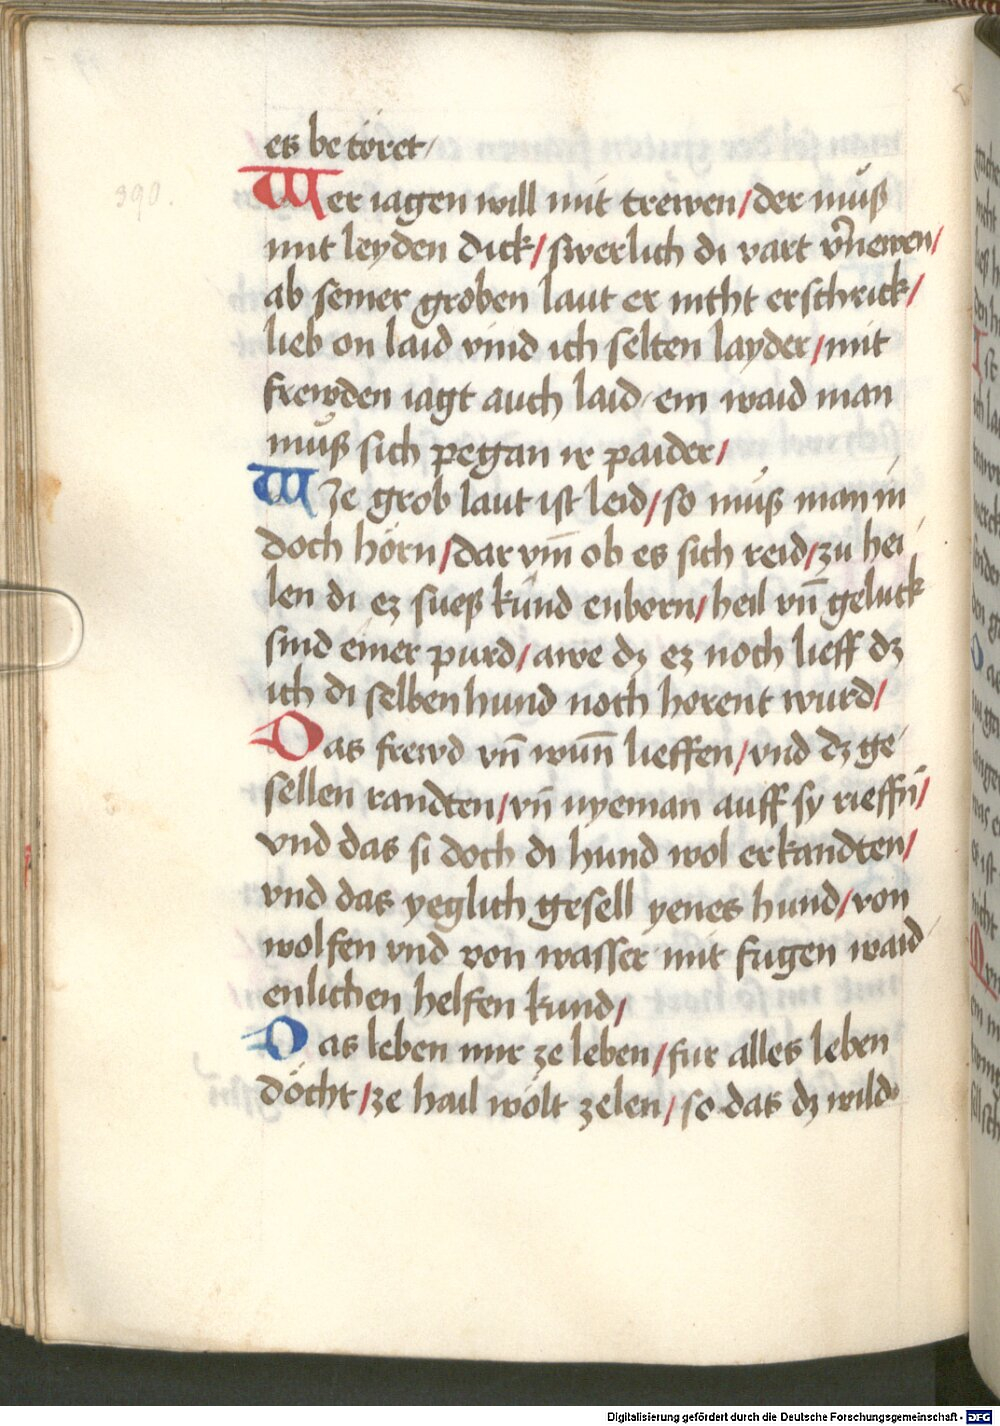 es betöret /
390.
Wer iagen will mit trewen / der muͦß
mit leyden dick / swerlich di vart v̄newen /
ab seiner groben laut er nicht erschrick /
lieb on laid vind ich selten layder / mit
frewden iagt auch laid / ein waid man
muͦß sich pegan ir paider /
Wze grob laut ist leid / so muͦß man in
doch hörn / dar vm̄ ob es sich reid / zu hei
len di ez sueß kund enborn / heil vn̄ geluck
sind einer purd / awe dz ez noch lieff dz
ich di selben hund noch horent wurd /
Das frewd vn̄ wun̄ lieffen / vnd dz ge
sellen randten / vn̄ nyeman auff sy rieffn̄ /
vnd das si doch di hund wol erkandten /
vnd das yeglich gesell yenes hund / von
wolfen vnd von wasser mit fugen waid
enlichen helfen kund /
Das leben mir ze leben / fur alles leben
döcht / ze hail wölt zelen / so das dz wild
Digitalisierung gefördert durch die Deutsche Forschungsgemeinschaft - DFG